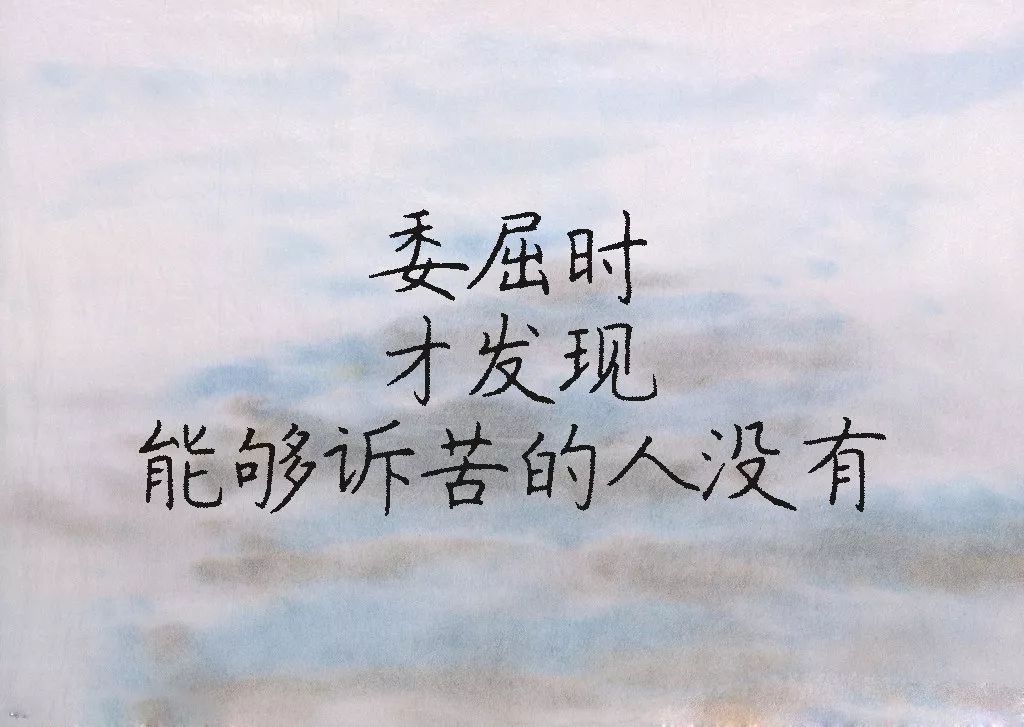 委屈时
才发现
能够诉苦的人没有